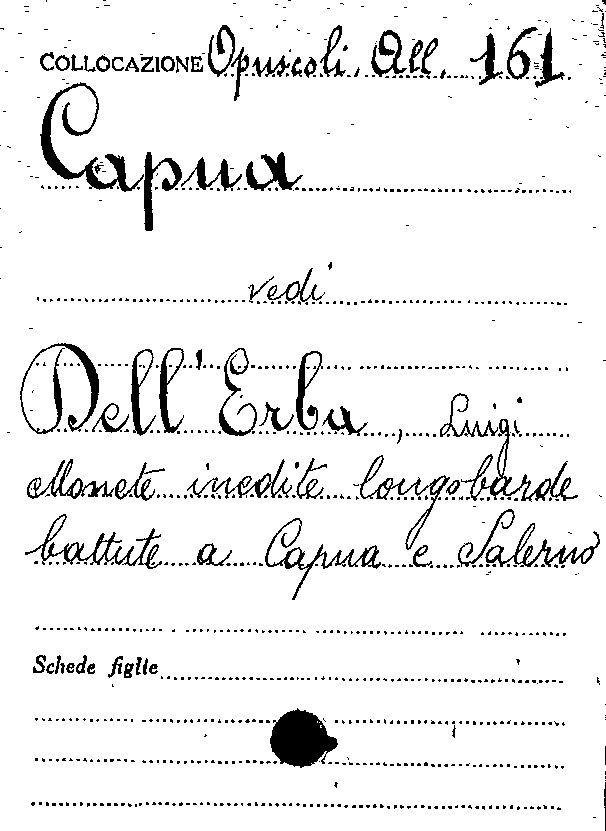 COLLOCAZIONE Opuscoli. All. 161
Capua
vedi
Dell'Erba, Luigi
Monete inedite longobarde
battute a Capua e Salerno
Schede figlie